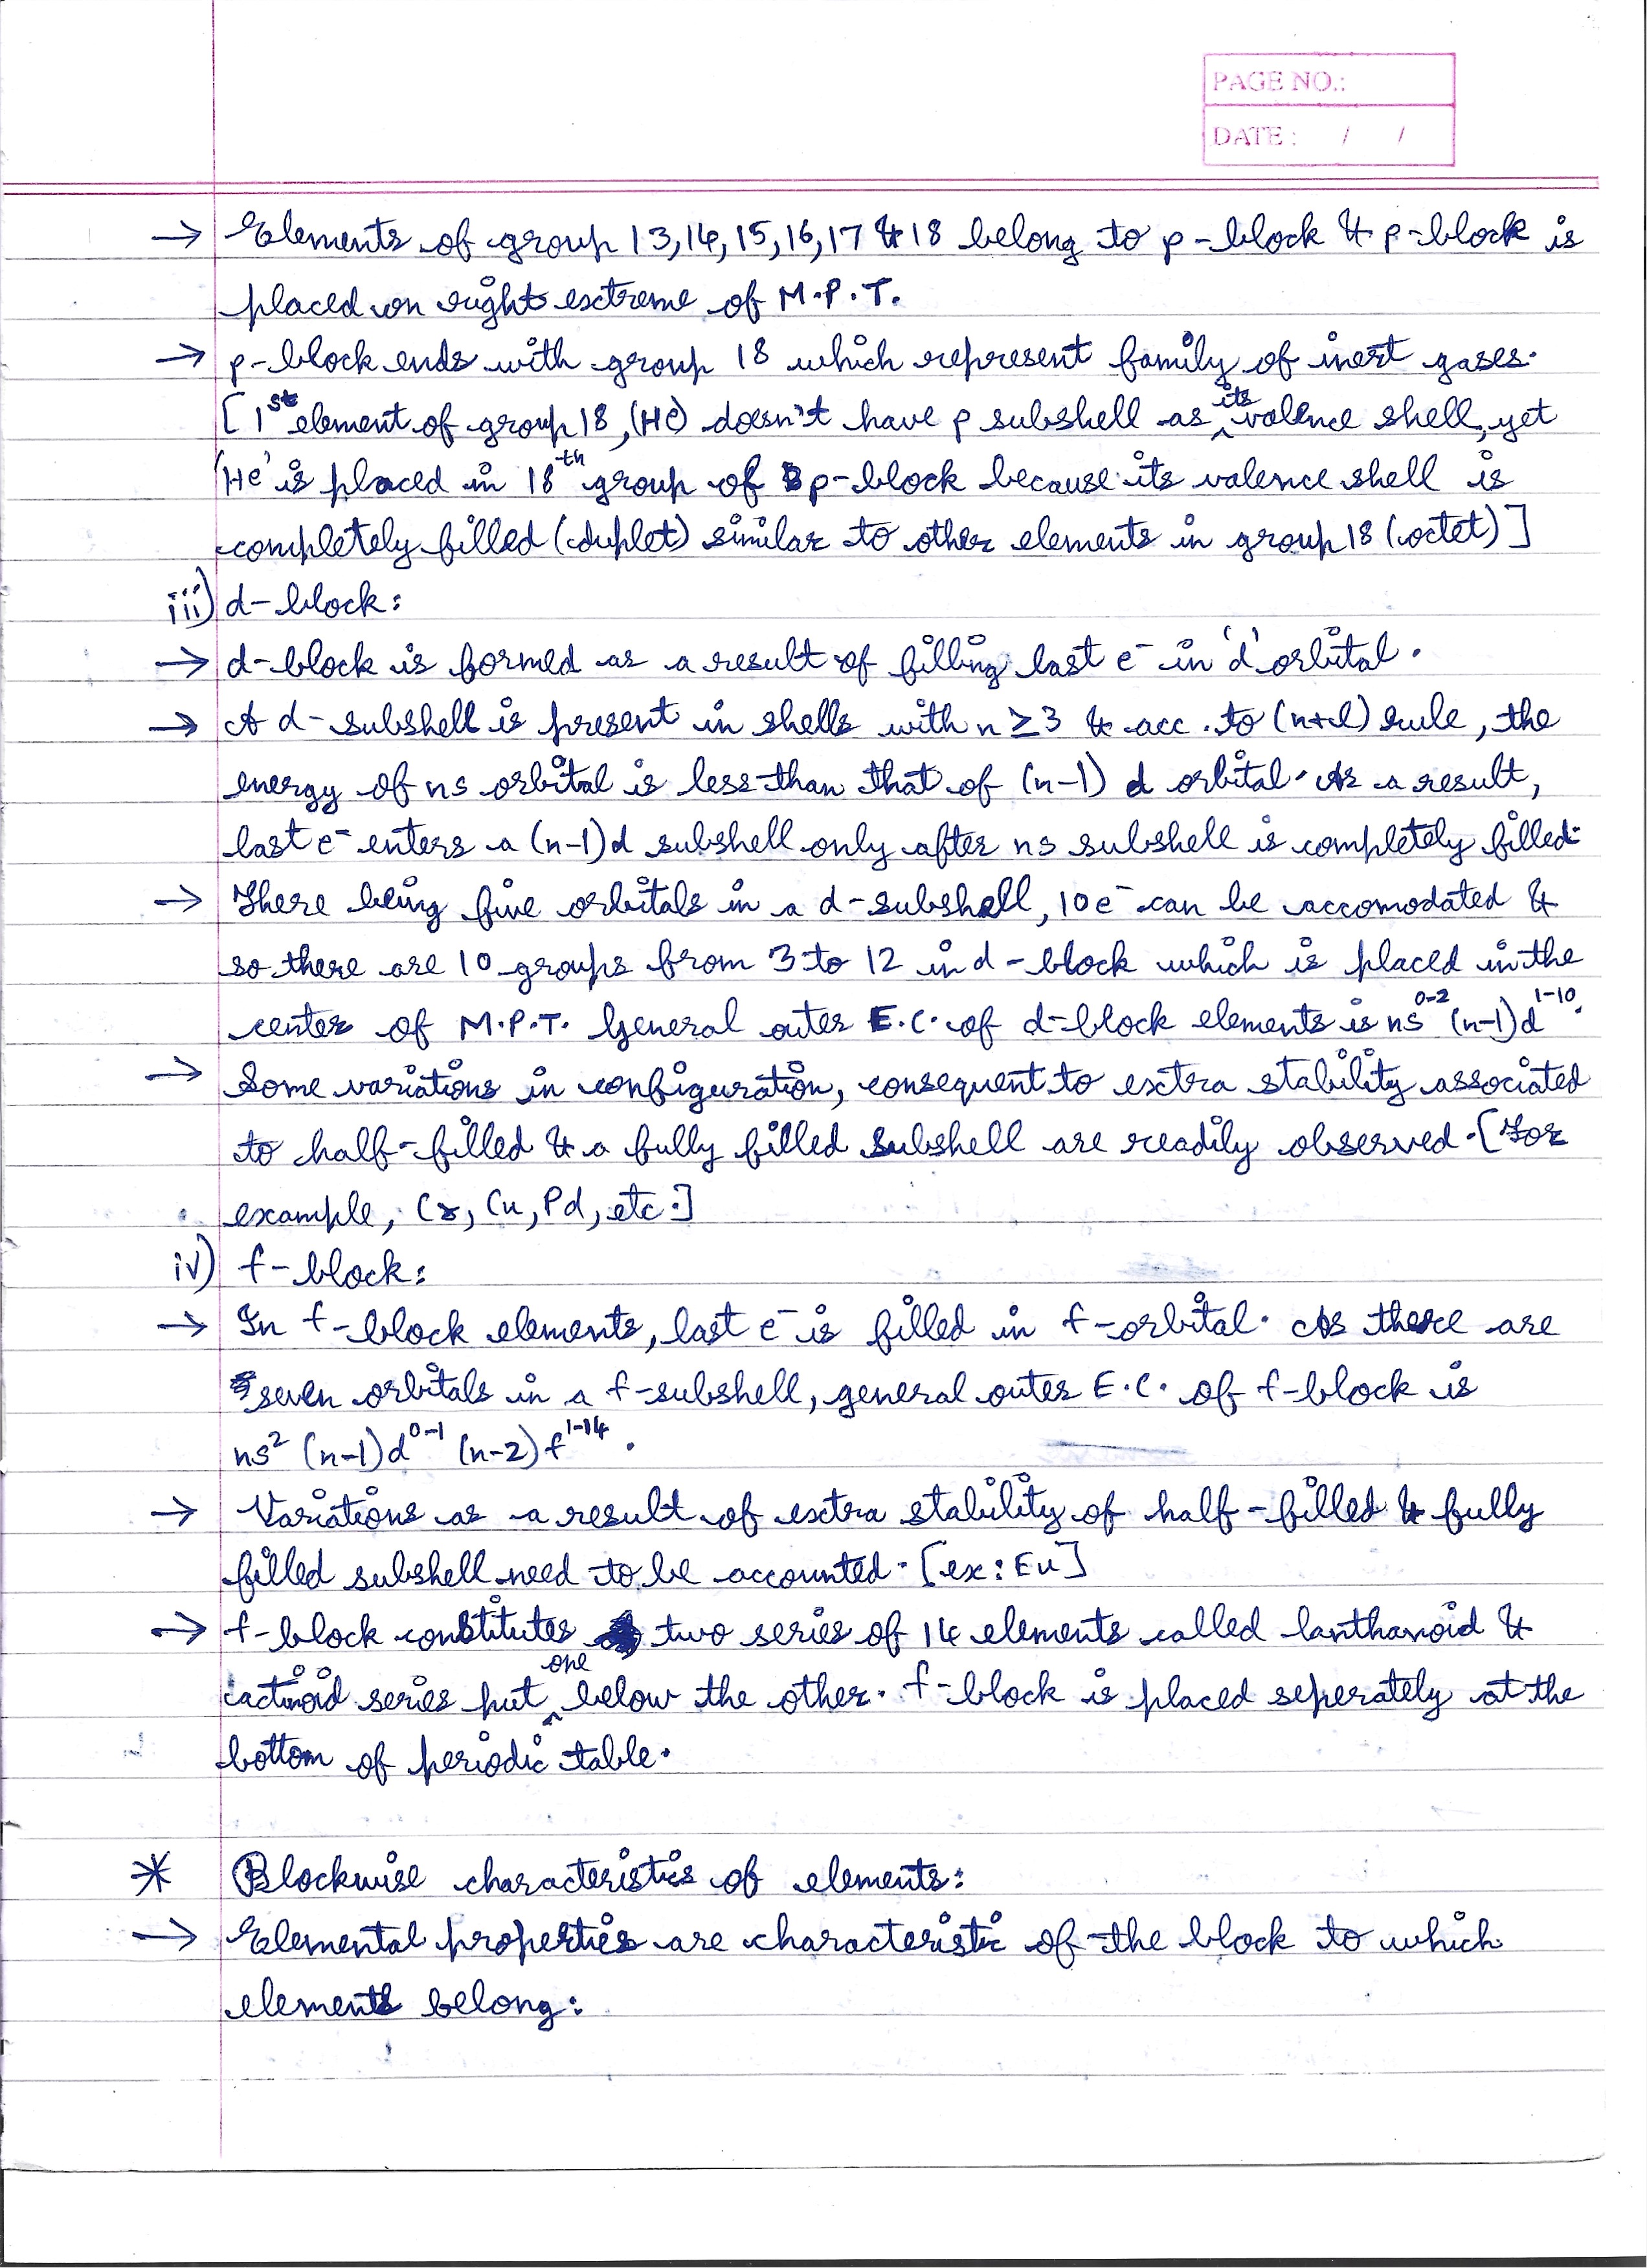 PAGE NO.:
DATE : / /
→ Elements of group 13,14,15,16,17 & 18 belong to p-block & p-block is
placed on right extreme of M.P.T.
→ p-block ends with group 18 which represent family of inert gases.
[1st element of group 18, (He) doesn't have p subshell as its valence shell, yet
'He' is placed in 18th group of p-block because its valence shell is
completely filled (duplet) similar to other elements in group 18 (octet)]
iii) d-block:
→ d-block is formed as a result of filling last e⁻ in 'd' orbital.
→ A d-subshell is present in shells with n ≥ 3 & acc. to (n+l) rule, the
energy of ns orbital is less than that of (n-1) d orbital. As a result,
last e⁻ enters a (n-1)d subshell only after ns subshell is completely filled.
→ There being five orbitals in a d-subshell, 10e⁻ can be accomodated &
so there are 10 groups from 3 to 12 in d-block which is placed in the
center of M.P.T. General outer E.C. of d-block elements is ns⁰⁻² (n-1)d¹⁻¹⁰.
→ Some variations in configuration, consequent to extra stability associated
to half-filled & a fully filled subshell are readily observed. [For
example, Cr, Cu, Pd, etc.]
iv) f-block:
→ In f-block elements, last e⁻ is filled in f-orbital. As there are
seven orbitals in a f-subshell, general outer E.C. of f-block is
ns² (n-1)d⁰⁻¹ (n-2)f¹⁻¹⁴.
→ Variations as a result of extra stability of half-filled & fully
filled subshell need to be accounted. [ex: Eu]
→ f-block constitutes two series of 14 elements called lanthanoid &
actinoid series put one below the other. f-block is placed seperately at the
bottom of periodic table.
* Blockwise characteristics of elements:
→ Elemental properties are characteristic of the block to which
elements belong: